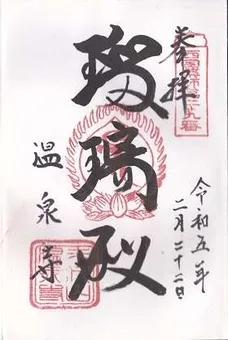 奉拝
令和五年
二月二十二日
瑠璃殿
温泉寺